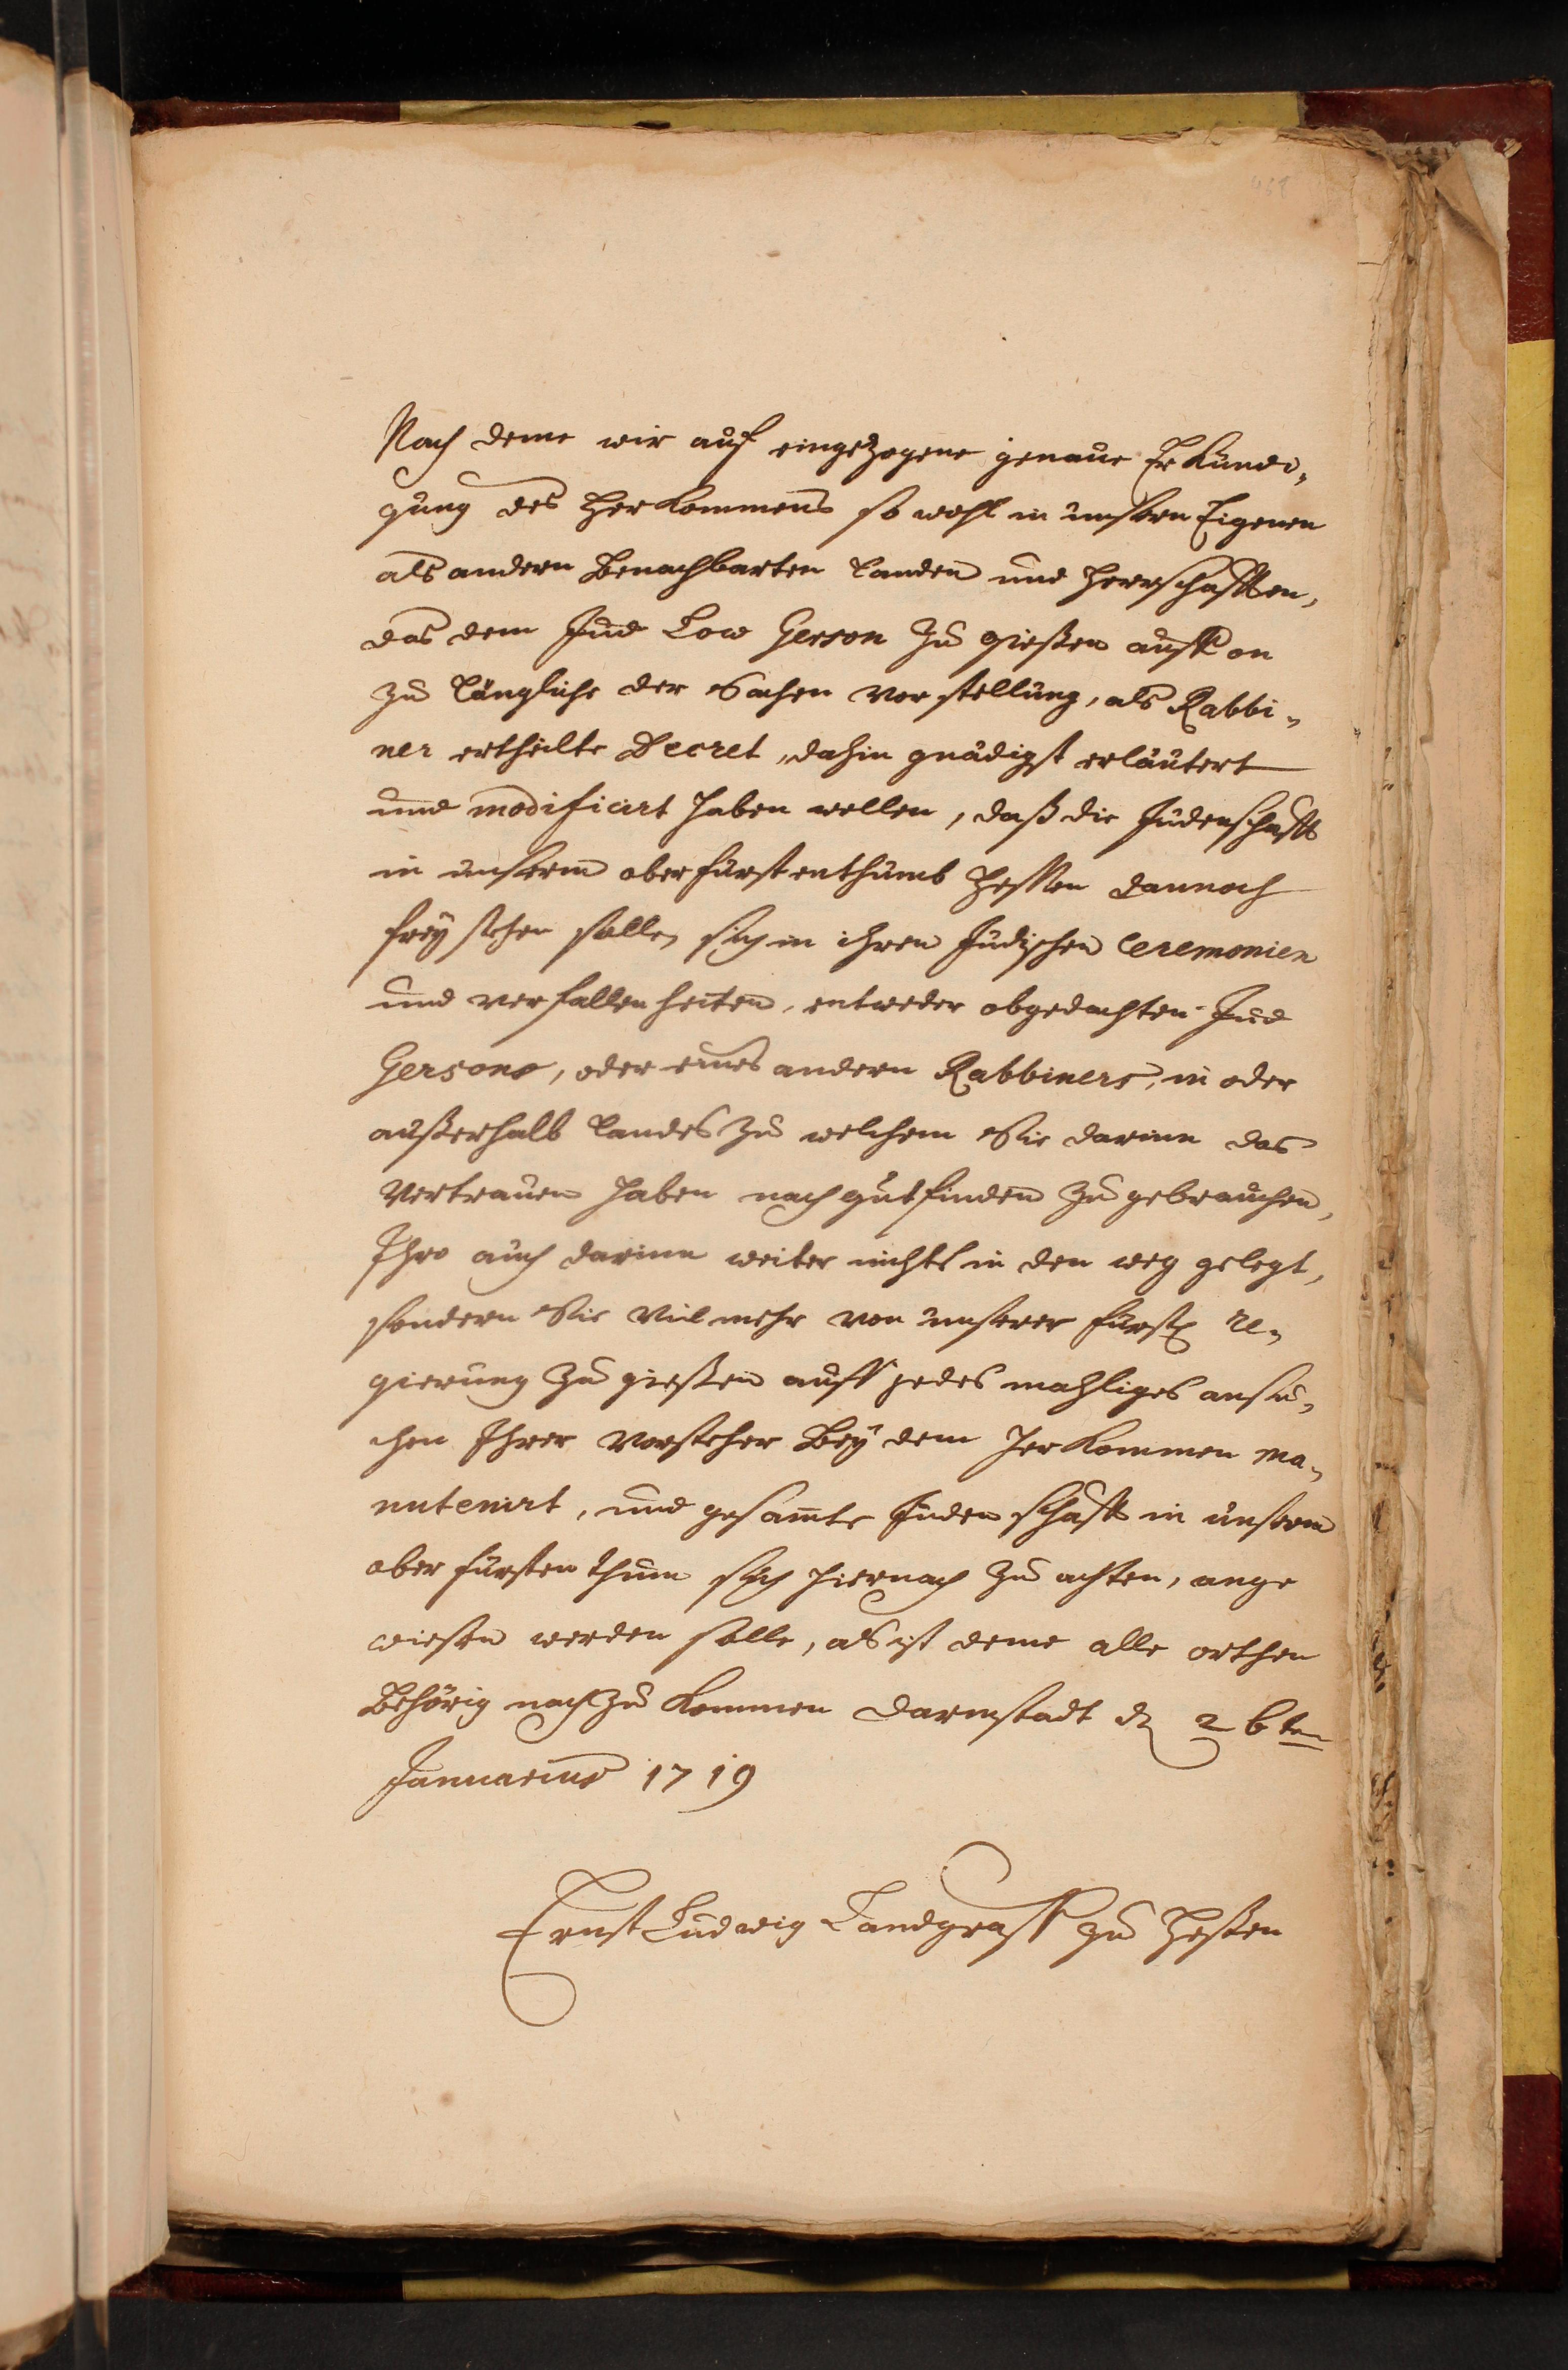 Nach deme wir auf eingezogene genaue Erkundi„
gung des Herkommens so wohl in unsern Eigenen
als andern Benachbarten Landen und Herrschafften,
das dem Jud Low Gerson zu Gießen auff on
zu längliche der Sachen vorstellung, als Rabbi„
ner ertheilte Decret, dahin gnädigst erläutert
und modificirt haben wollen, daß die Judenschafft
in unserm oberfürstenthumb Hessen dannoch
frey stehen solle, sich in ihren Jüdischen Ceremonien
und verfallenheiten, entweder obgedachten Jud
Gersons, oder eines andern Rabbiners, in oder
außerhalb Landes zu welchem Sie darinn das
Vertrauen haben nach gutfinden zu gebrauchen,
Ihro auch darinn weiter nichts in den weg gelegt,
sondern Sie Viel mehr von unserer fürstl re„
gierung zu gießen auff jedes mahliges ansu„
chen Ihrer Vorsteher Bey dem herkommen ma„
nutenirt, und gesamte Judenschafft in unserm
oberfürstenthum sich hiernach zu achten, ange
wiesen werden solle, als ist deme alle orthen
Behörig nachzukommen Darmstadt d 26ten
Januarius 1719
Ernst Ludwig Landgraff zu Heßen